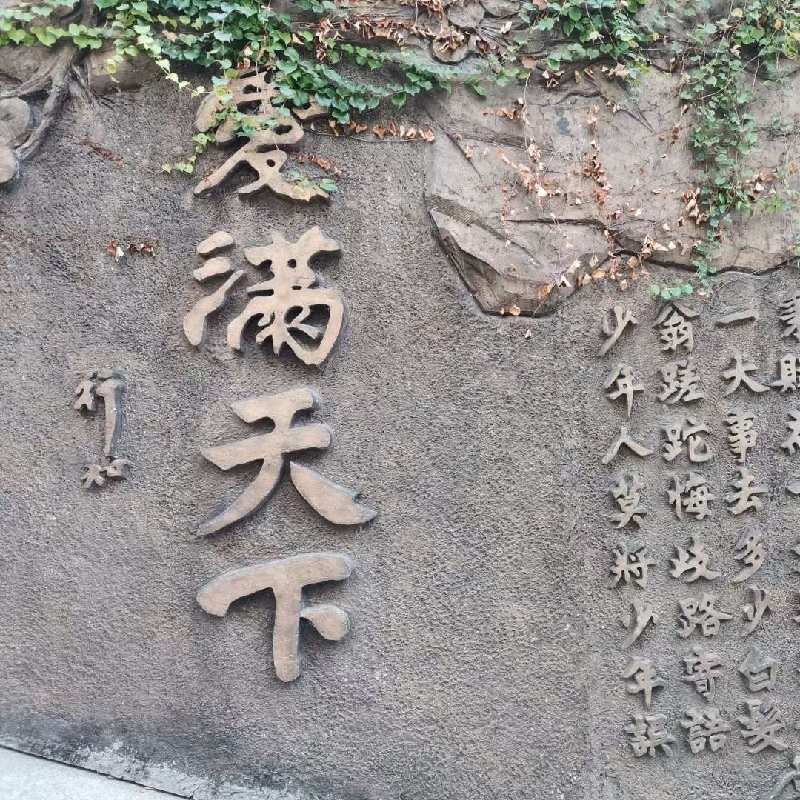 一大事去多少白髮
翁蹉跎悔歧路寄語
少年人莫將少年誤
愛滿天下
行知